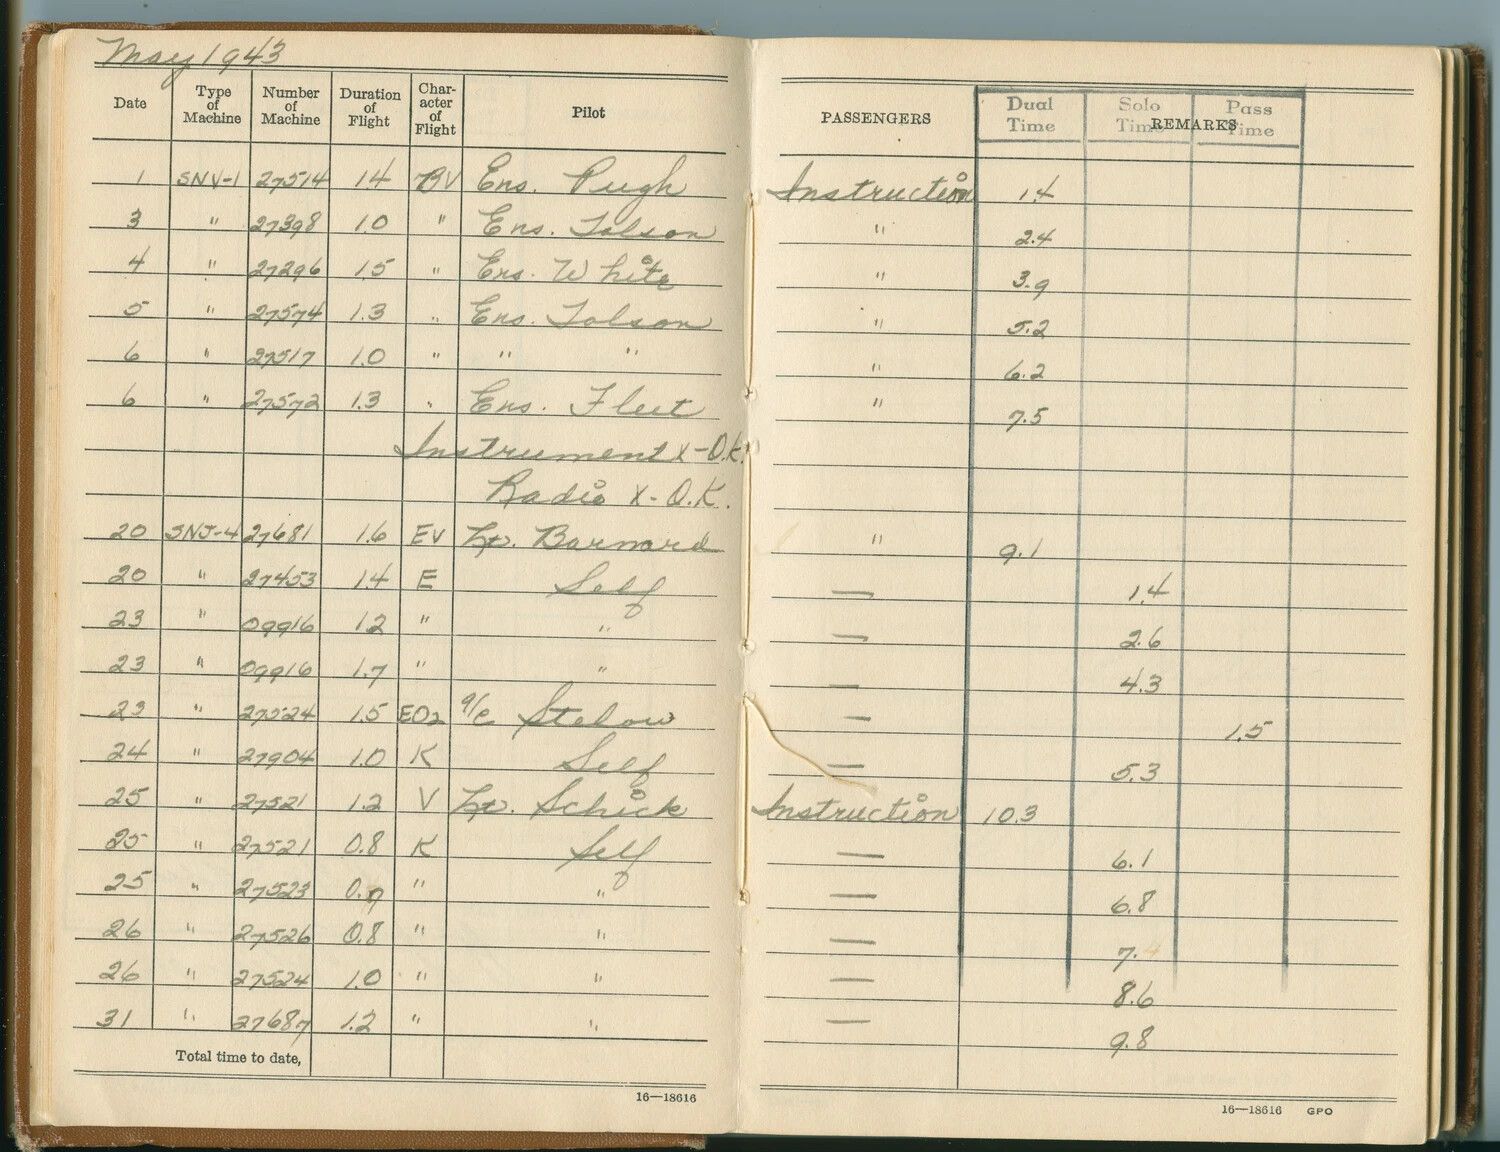 May 1943
Date Type of Machine Number of Machine Duration of Flight Char-acter of Flight Pilot PASSENGERS REMARKS Dual Time Solo Time Pass Time
1 SNV-1 27514 1.4 BV Ens. Pugh Instruction 1.4
3 " 27398 1.0 " Ens. Tolson " 2.4
4 " 27296 1.5 " Ens. White " 3.9
5 " 27574 1.3 " Ens. Tolson " 5.2
6 " 27517 1.0 " " " " 6.2
6 " 27572 1.3 " Ens. Fleet " 7.5
Instrument X-O.K.
Radio X-O.K.
20 SNJ-4 27681 1.6 EV Lt. Barnard " 9.1
20 " 27453 1.4 E Self — 1.4
23 " 09916 1.2 " " — 2.6
23 " 09916 1.7 " " — 4.3
23 " 27524 1.5 EO2 a/c Stelow — 1.5
24 " 27904 1.0 K Self — 5.3
25 " 27521 1.2 V Lt. Schick Instruction 10.3
25 " 27521 0.8 K Self — 6.1
25 " 27523 0.7 " " — 6.8
26 " 27526 0.8 " " — 7.
26 " 27524 1.0 " " — 8.6
31 " 27687 1.2 " " — 9.8
Total time to date,
16—18616
16—18616 GPO